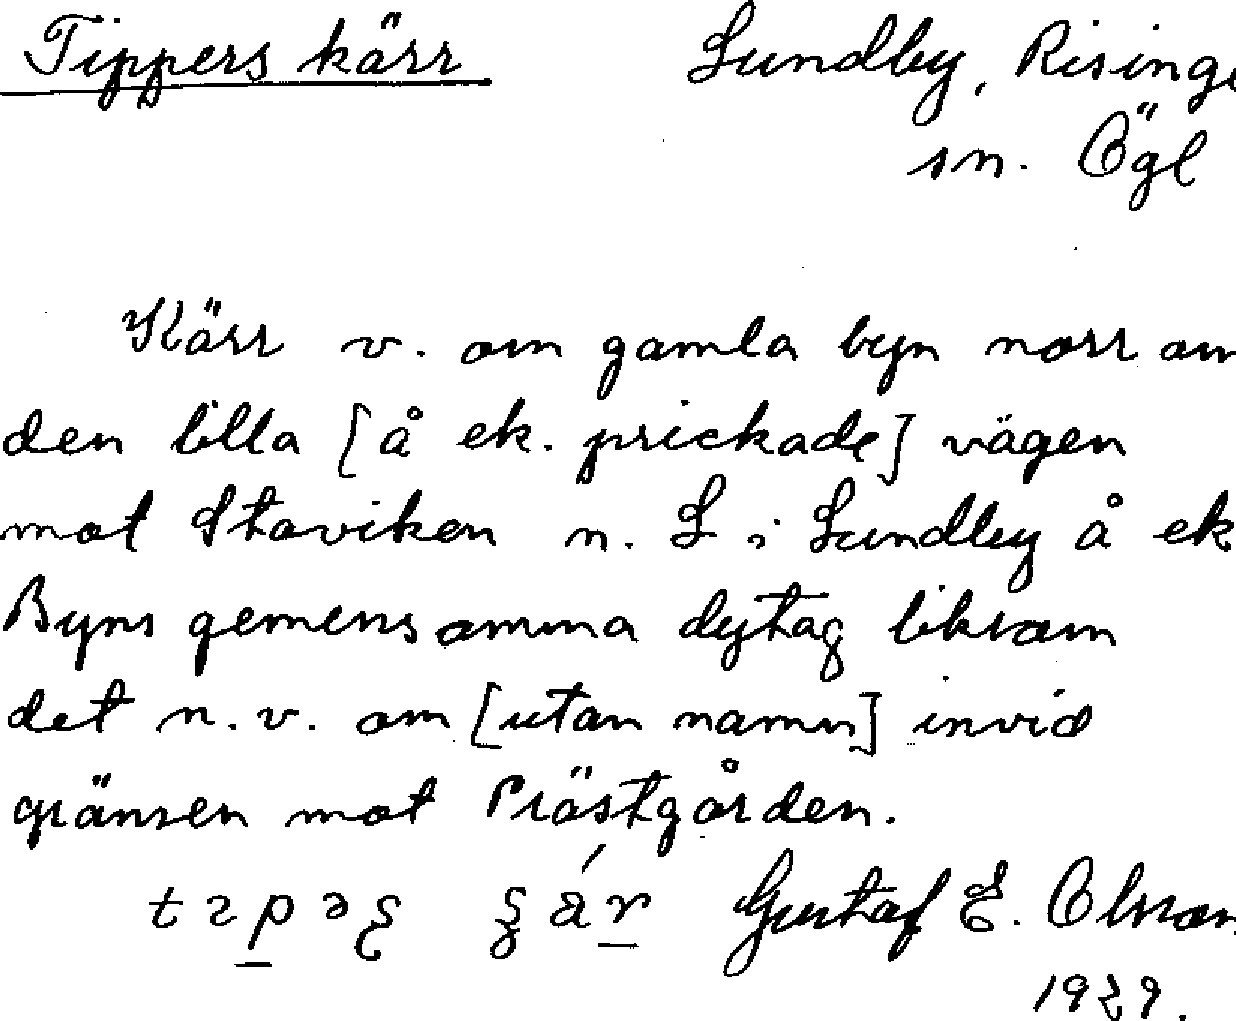 Tippers kärr Lundby, Risinge
sn. Ögl
Kärr v. om gamla byn norr om
den lilla [å ek. prickade] vägen
mot Staviken n. L i Lundby å ek
Byns gemensamma dytag liksom
det n.v. om [utan namn] invid
gränsen mot Prästgården.
Gustaf E. Olsson
1929.